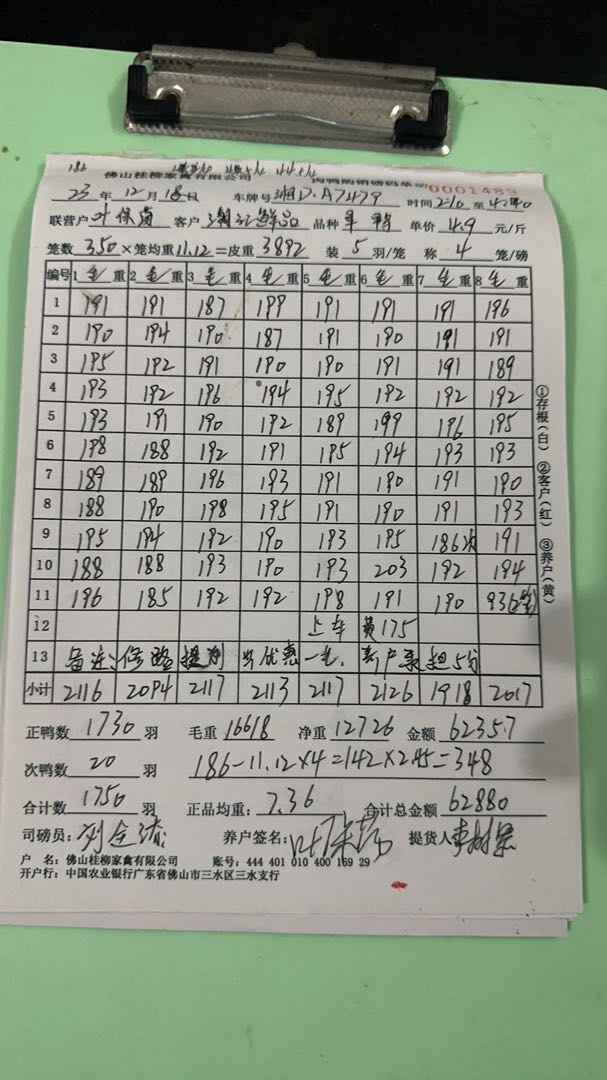 佛山桂柳家禽有限公司 肉鸭购销磅码单 NO 0001489
23 年 12 月 18 日 车牌号 湘D.A7479 时间 2:10 至 4:40
联营户 叶保 客户 鲜品 品种 鸭 单价 4.9 元/斤
笼数 350 × 笼均重 11.12 = 皮重 3892 装 5 羽/笼 称 4 笼/磅
编号 1 毛 重 2 毛 重 3 毛 重 4 毛 重 5 毛 重 6 毛 重 7 毛 重 8 毛 重
1 191 191 187 199 191 191 191 196
2 190 194 190 187 191 190 191 191
3 195 192 191 190 190 191 191 189
4 193 192 196 194 195 192 192 192
5 193 191 190 192 189 199 196 195
6 198 188 192 191 195 194 193 193
7 189 189 196 193 191 190 191 190
8 188 190 198 195 191 190 191 193
9 195 194 192 190 193 195 186次 191
10 188 188 193 190 193 203 192 194
11 196 185 192 192 198 191 190 93(2笼)
12 上车 黄175
13 备注: 优惠一毛. 担5分
小计 2116 2094 2117 2113 2117 2126 1918 2017
正鸭数 1730 羽 毛重 16618 净重 12726 金额 62357
次鸭数 20 羽 186-11.12×4=142×2.45=348
合计数 1750 羽 正品均重: 7.36 合计总金额 62880
司磅员: 养户签名: 提货人
户 名: 佛山桂柳家禽有限公司 账号: 444 401 010 400 169 29
开户行: 中国农业银行广东省佛山市三水区三水支行
①存根(白) ②客户(红) ③养户(黄)